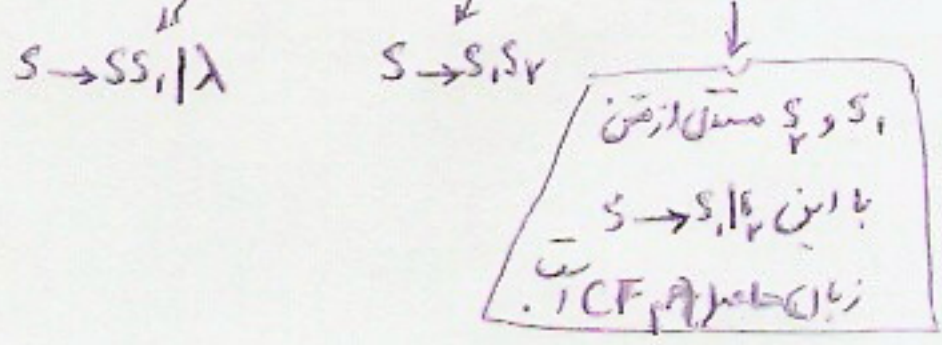 S → SS₁ | λ
S → S₁S₂
S₁ و S₂ مستقل از متن
با این S → S₁|S₂
زبان حاصل هم CF است.